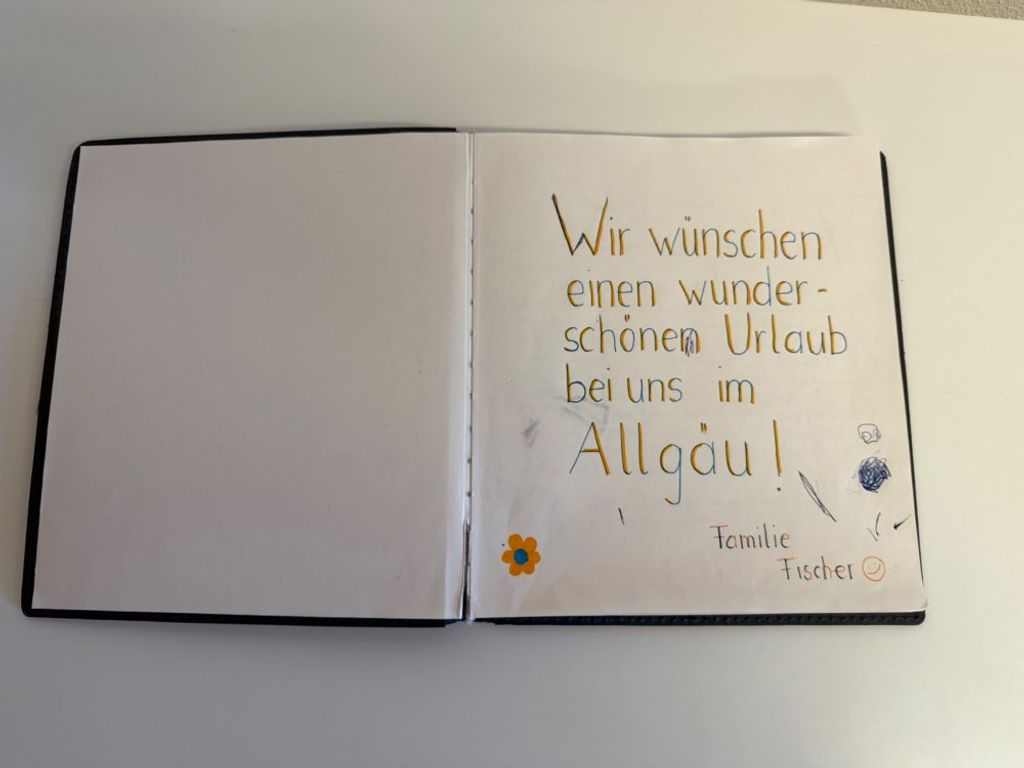 Wir wünschen
einen wunder-
schönen Urlaub
bei uns im
Allgäu!
Familie
Fischer